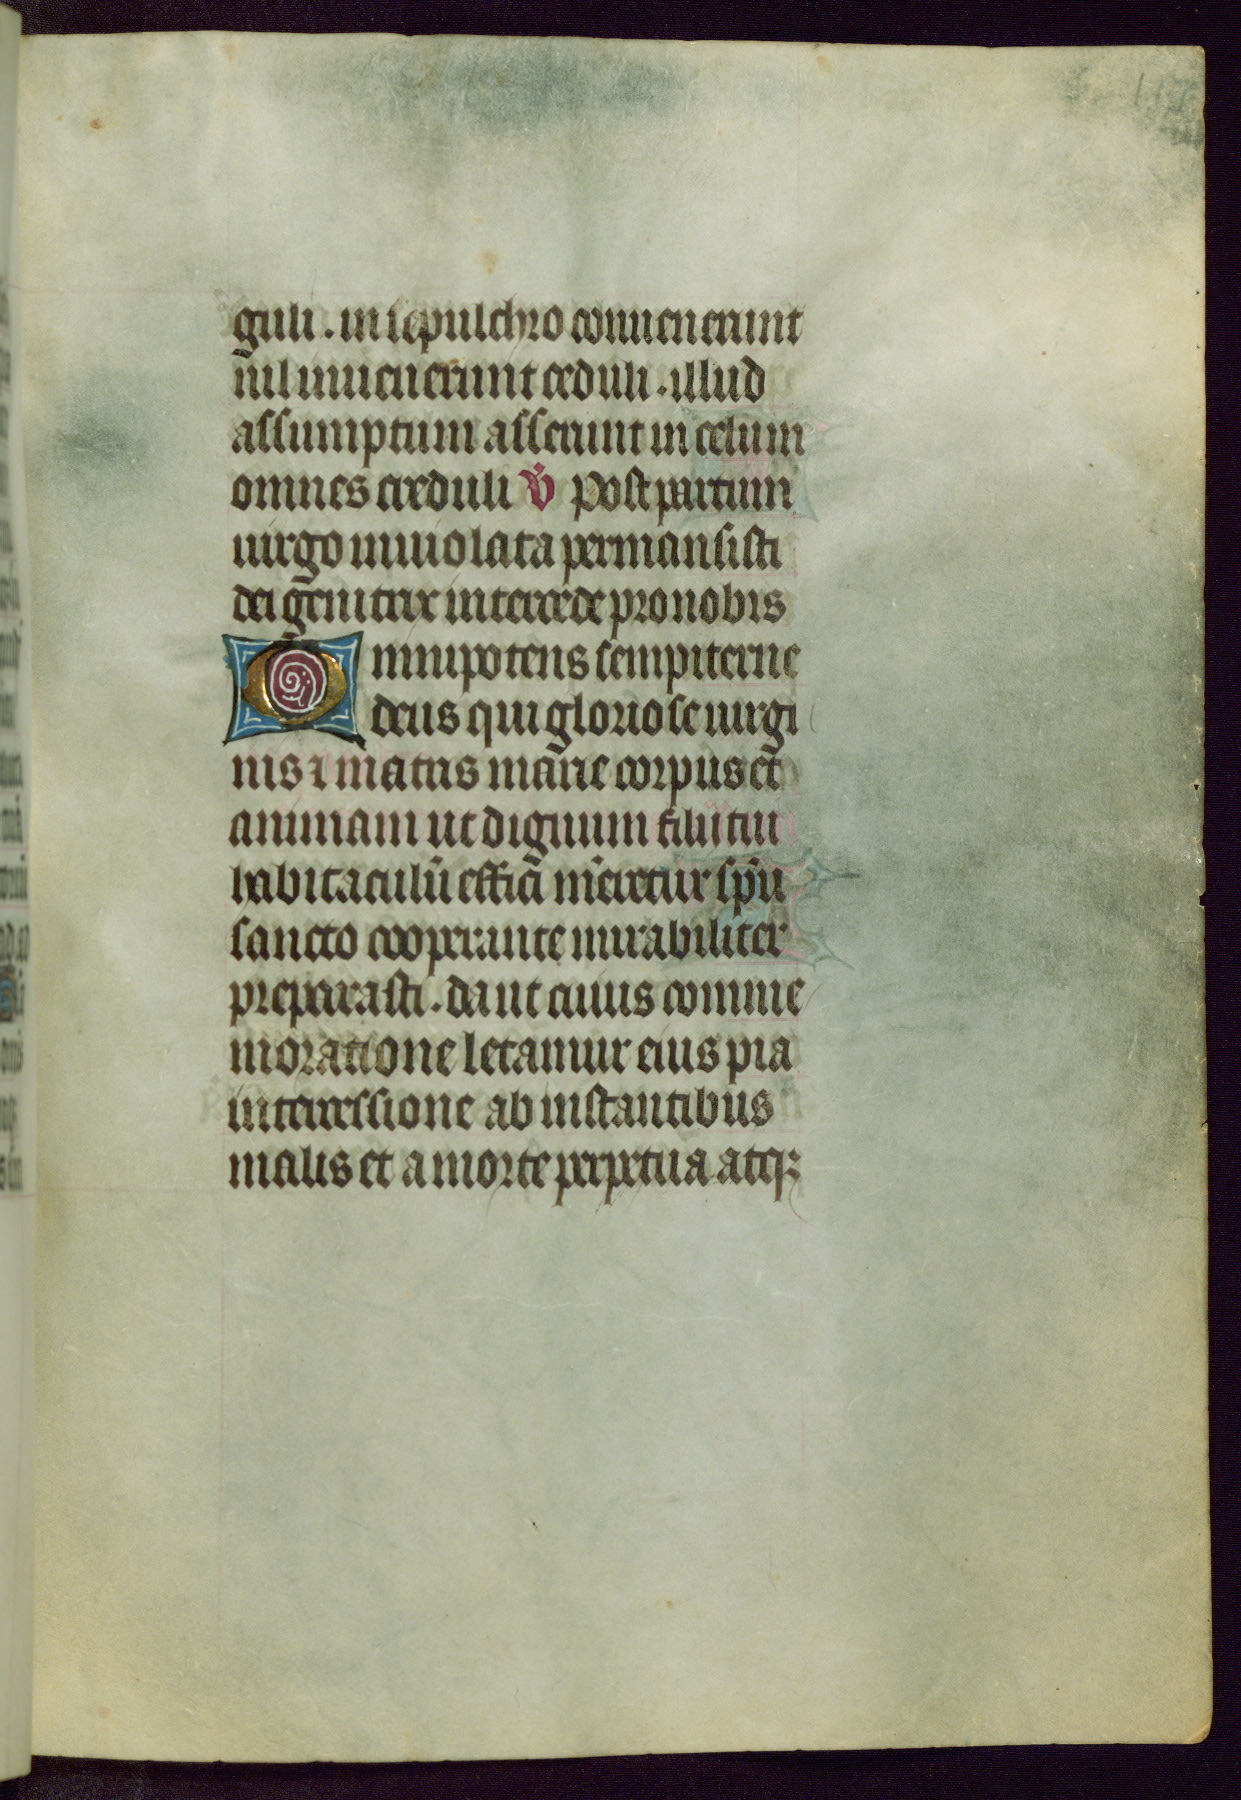 guli . in sepulchro conuenerunt
nil inuenerunt creduli . illud
assumptum asserunt in celum
omnes creduli V̇ Post partum
uirgo inuiolata permansisti
dei genitrix intercede pro nobis
Omnipotens sempiterne
deus qui gloriose uirgi
nis ⁊ matris marie corpus et
animam ut dignum filii tui
habitaculū effici mēretur spū
sancto cooperante mirabiliter
preparasti . da ut cuius comme
moratione letamur eius pia
intercessione ab instantibus
malis et a morte perpetua atqꝫ